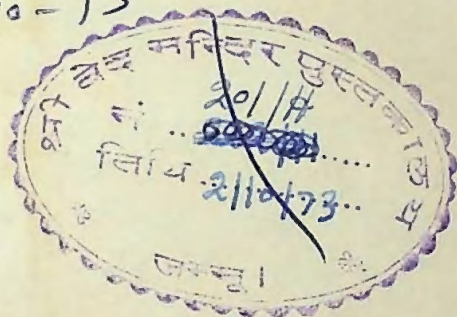 श्री वेद मन्दिर पुस्तकालय
नं ..
201/A
तिथि .. 2/10/73 ..
जम्मू ।